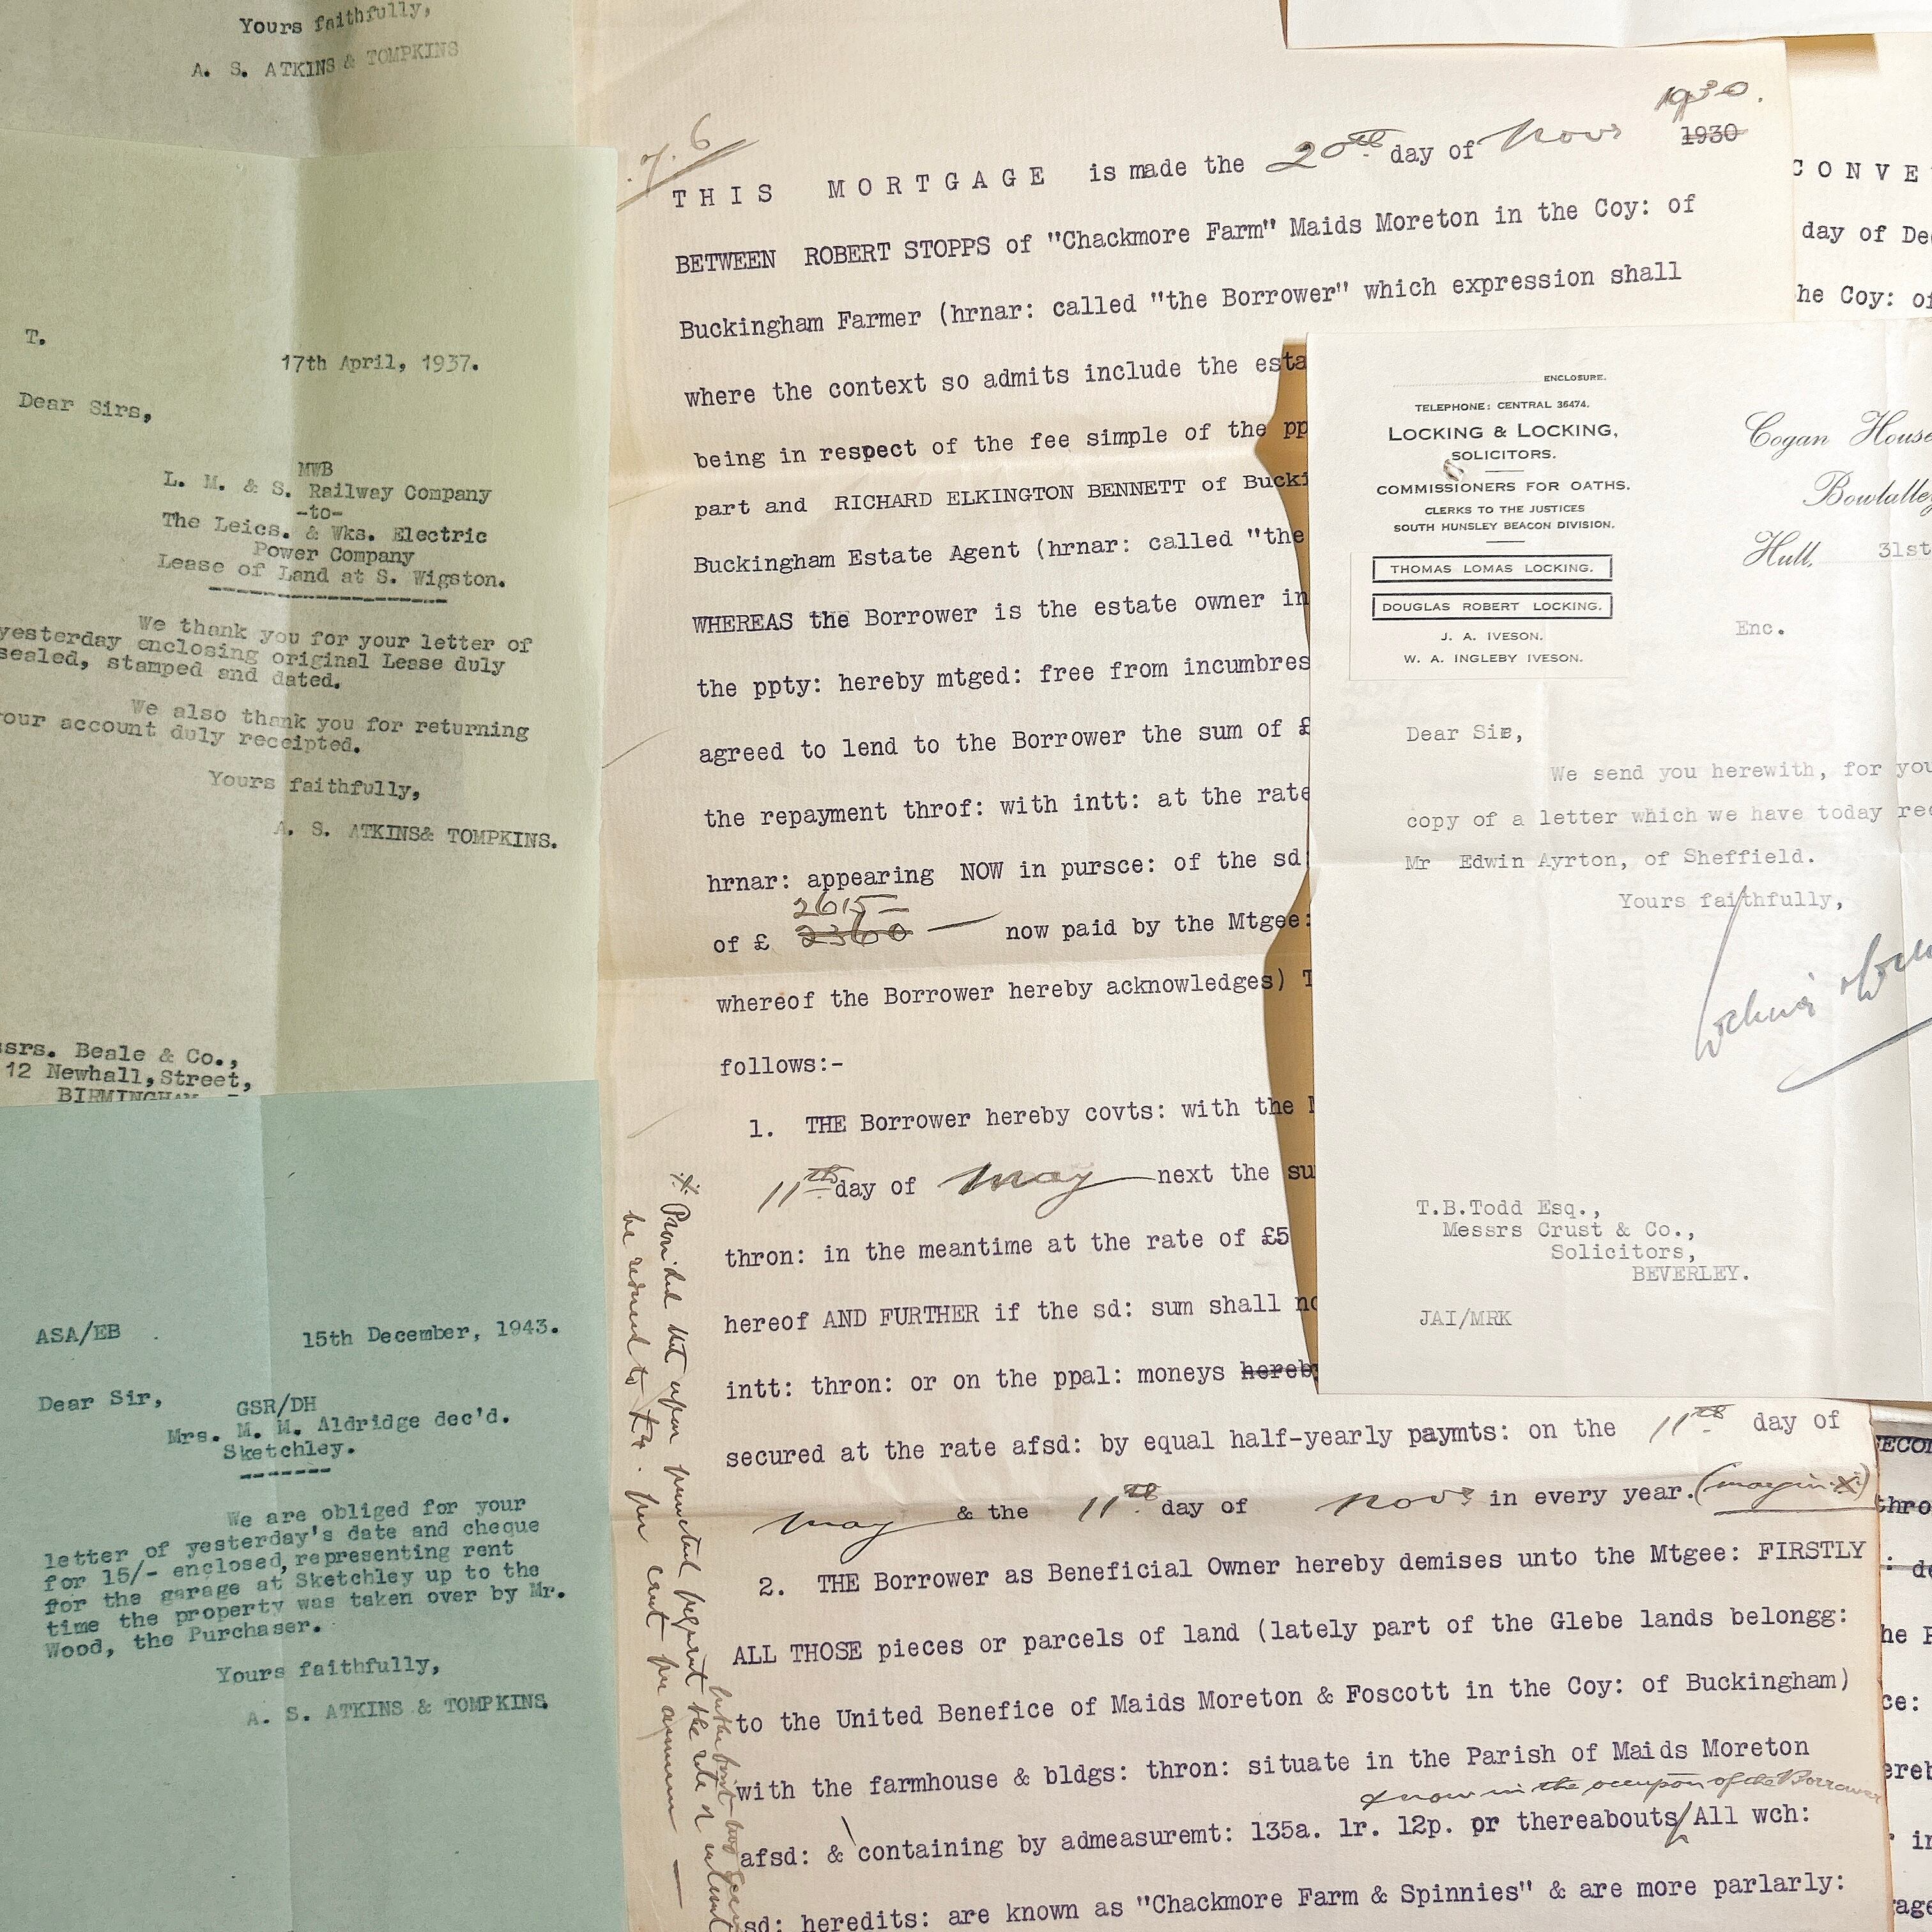 Yours faithfully,
A. S. ATKINS & TOMPKINS
T.
17th April, 1937.
Dear Sirs,
MWB
L. M. & S. Railway Company
-to-
The Leics. & Wks. Electric
Power Company
Lease of Land at S. Wigston.
We thank you for your letter of
yesterday enclosing original Lease duly
sealed, stamped and dated.
We also thank you for returning
our account duly receipted.
Yours faithfully,
A. S. ATKINS& TOMPKINS.
ssrs. Beale & Co.,
12 Newhall, Street,
BIRMINGHAM
ASA/EB
15th December, 1943.
Dear Sir,
GSR/DH
Mrs. M. M. Aldridge dec'd.
Sketchley.
We are obliged for your
letter of yesterday's date and cheque
for 15/- enclosed, representing rent
for the garage at Sketchley up to the
time the property was taken over by Mr.
Wood, the Purchaser.
Yours faithfully,
A. S. ATKINS & TOMPKINS.
6
1930.
THIS MORTGAGE is made the 20th day of Novr 1930
BETWEEN ROBERT STOPPS of "Chackmore Farm" Maids Moreton in the Coy: of
Buckingham Farmer (hrnar: called "the Borrower" which expression shall
where the context so admits include the esta
being in respect of the fee simple of the pp
part and RICHARD ELKINGTON BENNETT of Bucki
Buckingham Estate Agent (hrnar: called "the
WHEREAS the Borrower is the estate owner in
the ppty: hereby mtged: free from incumbres
agreed to lend to the Borrower the sum of £
the repayment throf: with intt: at the rate
hrnar: appearing NOW in pursce: of the sd
2615 -
of £ 2360 — now paid by the Mtgee:
whereof the Borrower hereby acknowledges) T
follows:-
1. THE Borrower hereby covts: with the M
11th day of May next the su
thron: in the meantime at the rate of £5
hereof AND FURTHER if the sd: sum shall no
intt: thron: or on the ppal: moneys hereb
secured at the rate afsd: by equal half-yearly paymts: on the 11th day of
May & the 11th day of Novr in every year. (margin X)
2. THE Borrower as Beneficial Owner hereby demises unto the Mtgee: FIRSTLY
ALL THOSE pieces or parcels of land (lately part of the Glebe lands belongg:
to the United Benefice of Maids Moreton & Foscott in the Coy: of Buckingham)
with the farmhouse & bldgs: thron: situate in the Parish of Maids Moreton
& now in the occupon of the Borrower
afsd: & containing by admeasuremt: 135a. 1r. 12p. or thereabouts/All wch:
sd: heredits: are known as "Chackmore Farm & Spinnies" & are more parlarly:
X Provided that upon punctual payment the rate of interest
be reduced to £4. per cent per annum —
CONVE
day of De
he Coy: of
ENCLOSURE.
TELEPHONE: CENTRAL 36474.
LOCKING & LOCKING,
SOLICITORS.
COMMISSIONERS FOR OATHS.
CLERKS TO THE JUSTICES
SOUTH HUNSLEY BEACON DIVISION.
THOMAS LOMAS LOCKING.
DOUGLAS ROBERT LOCKING.
J. A. IVESON.
W. A. INGLEBY IVESON.
Cogan House
Bowlalley
Hull, 31st
Enc.
Dear Sir,
We send you herewith, for you
copy of a letter which we have today rec
Mr Edwin Ayrton, of Sheffield.
Yours faithfully,
T.B.Todd Esq.,
Messrs Crust & Co.,
Solicitors,
BEVERLEY.
JAI/MRK
ECON
thro
: de
he
ce:
ereb
in